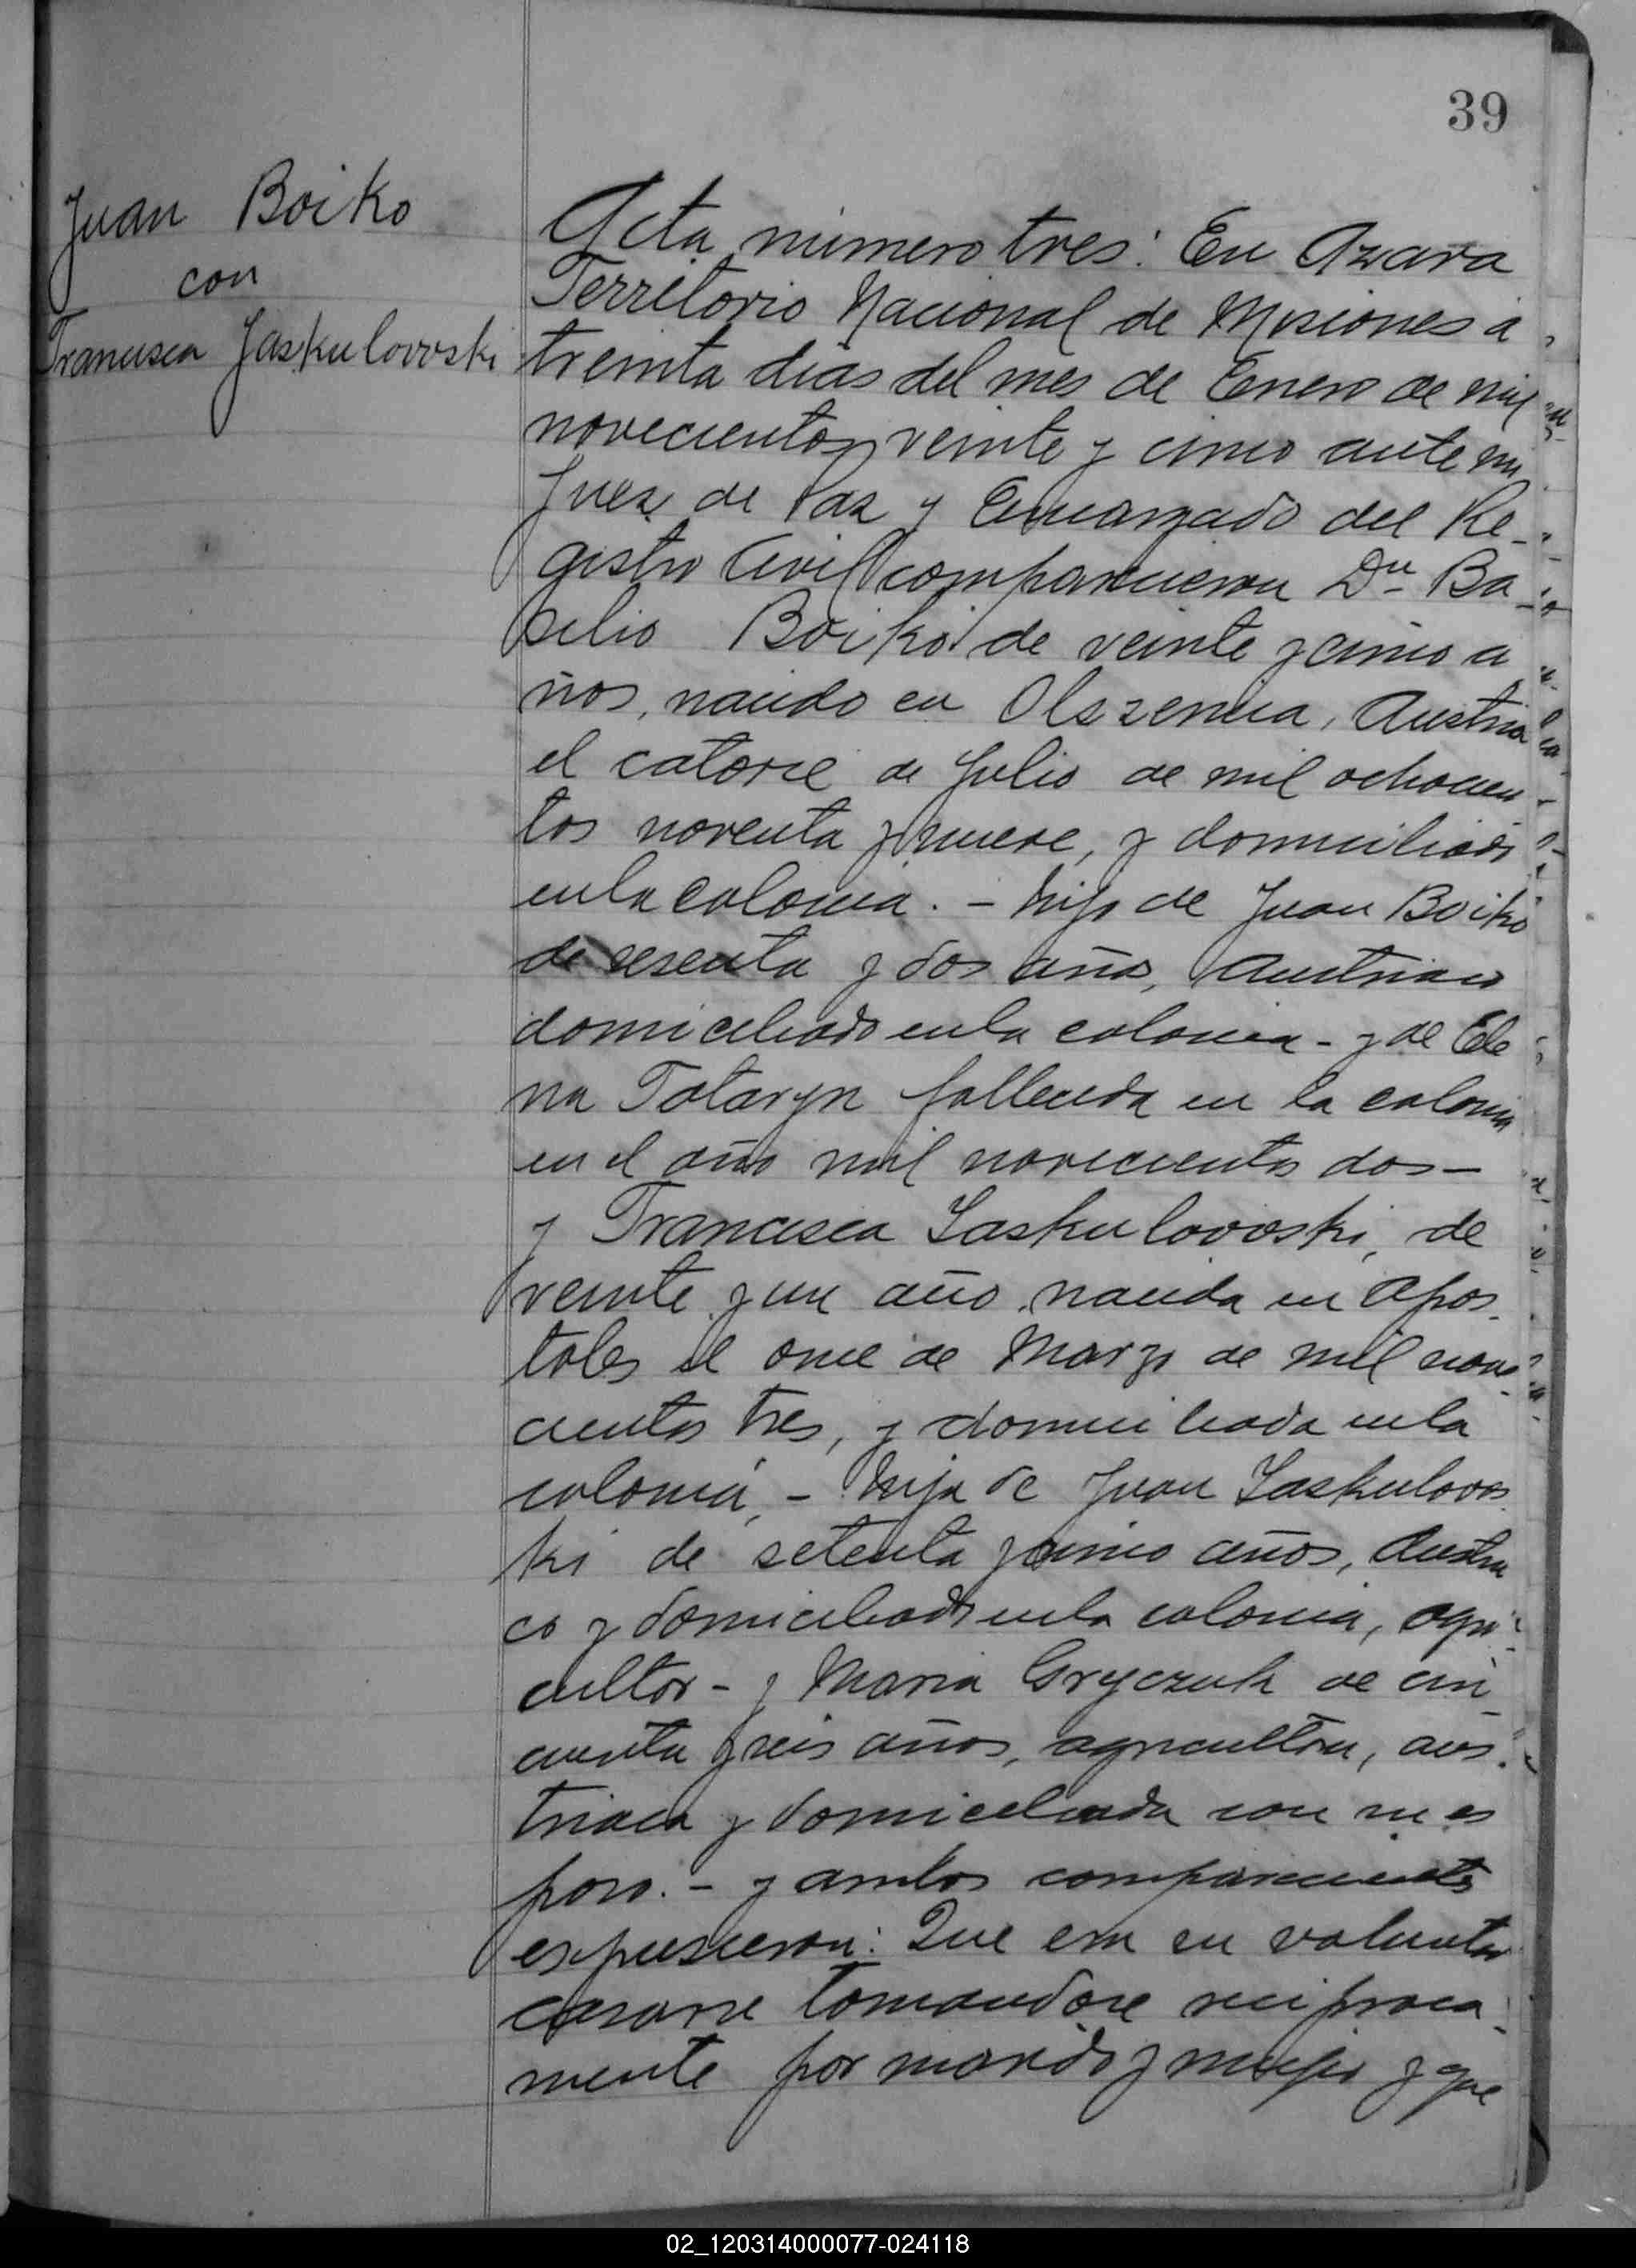 39
Juan Boiko
con
Francisca Jaskulovoski
Acta número tres: En Azara
Territorio Nacional de Misiones á
treinta dias del mes de Enero de mil
novecientos veinte y cinco ante mi
Juez de Paz y Encargado del Re-
gistro Civil comparecieron Dn Ba
silio Boiko de veinte y cinco a
ños, nacido en Olszenica, Austria
el catorce de Julio de mil ochocien
tos noventa y nueve, y domiciliado
en la colonia. - hijo de Juan Boiko
de sesenta y dos años, Austriaco
domiciliado en la colonia - y de Ele
na Tataryn fallecida en la colonia
en el año mil novecientos dos -
y Francisca Jaskulovoski, de
veinte y un año, nacida en Apos
toles el once de Marzo de mil nove
cientos tres, y domiciliada en la
colonia, - hija de Juan Jaskulovos
ki de setenta y cinco años, Austria
co y domiciliado en la colonia, agri
cultor - y Maria Gryczuk de cin
cuenta y seis años, agricultora, aus
triaca y domiciliada con su es
poso. - y ambos comparecientes
expusieron: Que era su voluntad
casarse tomandose reciproca
mente por marido y mujer y que
02_120314000077-024118